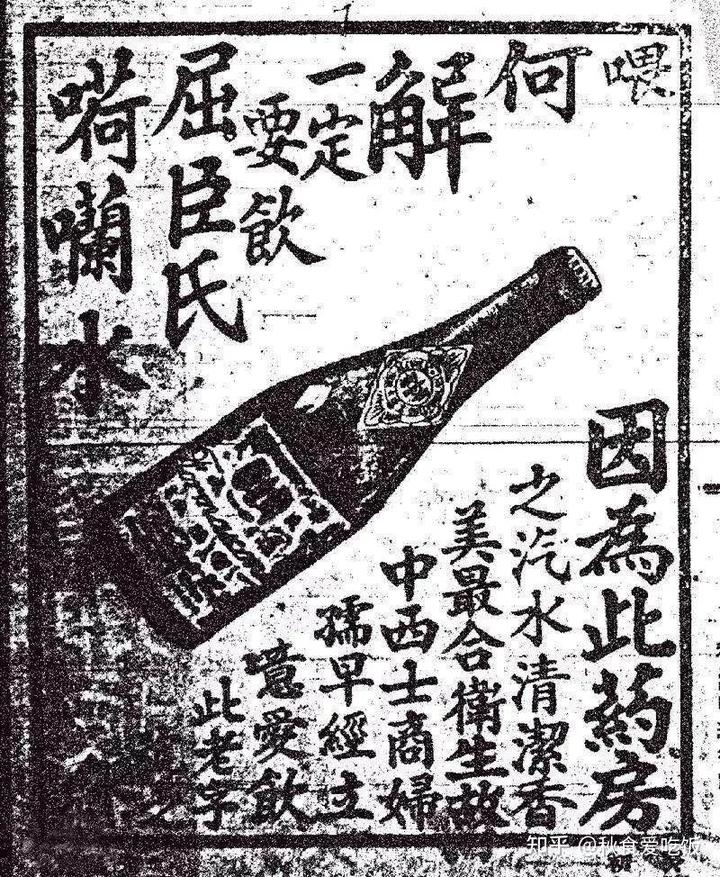 喂
何
解
一定
要飲
屈臣氏
嗬囒水
因為此葯房
之汽水清潔香
美最合衛生故
中西士商婦
孺早經立
意愛飲
此老字
知乎 @秋食爱吃饭